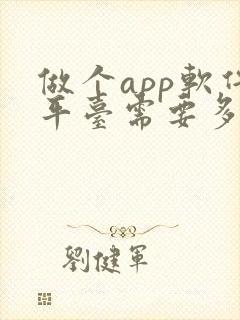 做个app軟件
平臺需要多
劉健軍